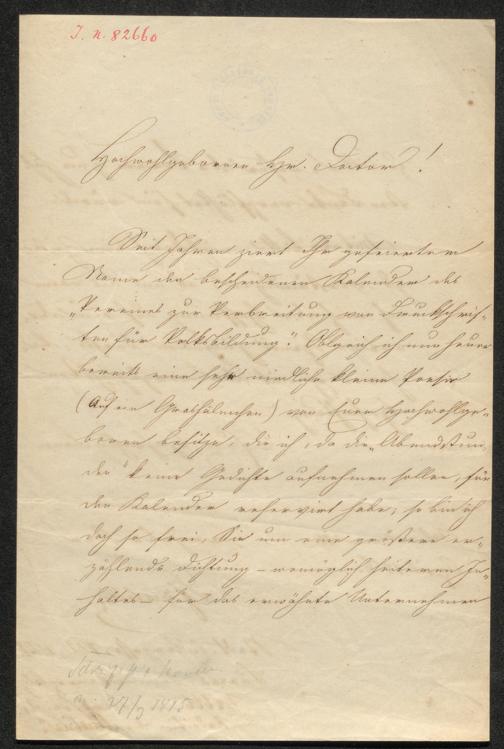 J. N. 82660
Hochwohlgeborener Hr. Doctor!
Seit Jahren ziert Ihr gefeierter
Name den bescheidenen Kalender des
„Vereines zur Verbreitung von Druckschrif-
ten für Volksbildung“. Obgleich ich nun heuer
bereits eine sehr niedliche kleine Poesie
(Auf ein Grashälmchen) von Euer Hochwohlge-
boren besitze, die ich, da die „Abendstun-
den“ keine Gedichte aufnehmen sollen, für
den Kalender reservirt habe, so bin ich
doch so frei, Sie um eine größere er-
zählende Dichtung – womöglich heiteren In-
haltes – für das erwähnte Unternehmen
27/9 1875